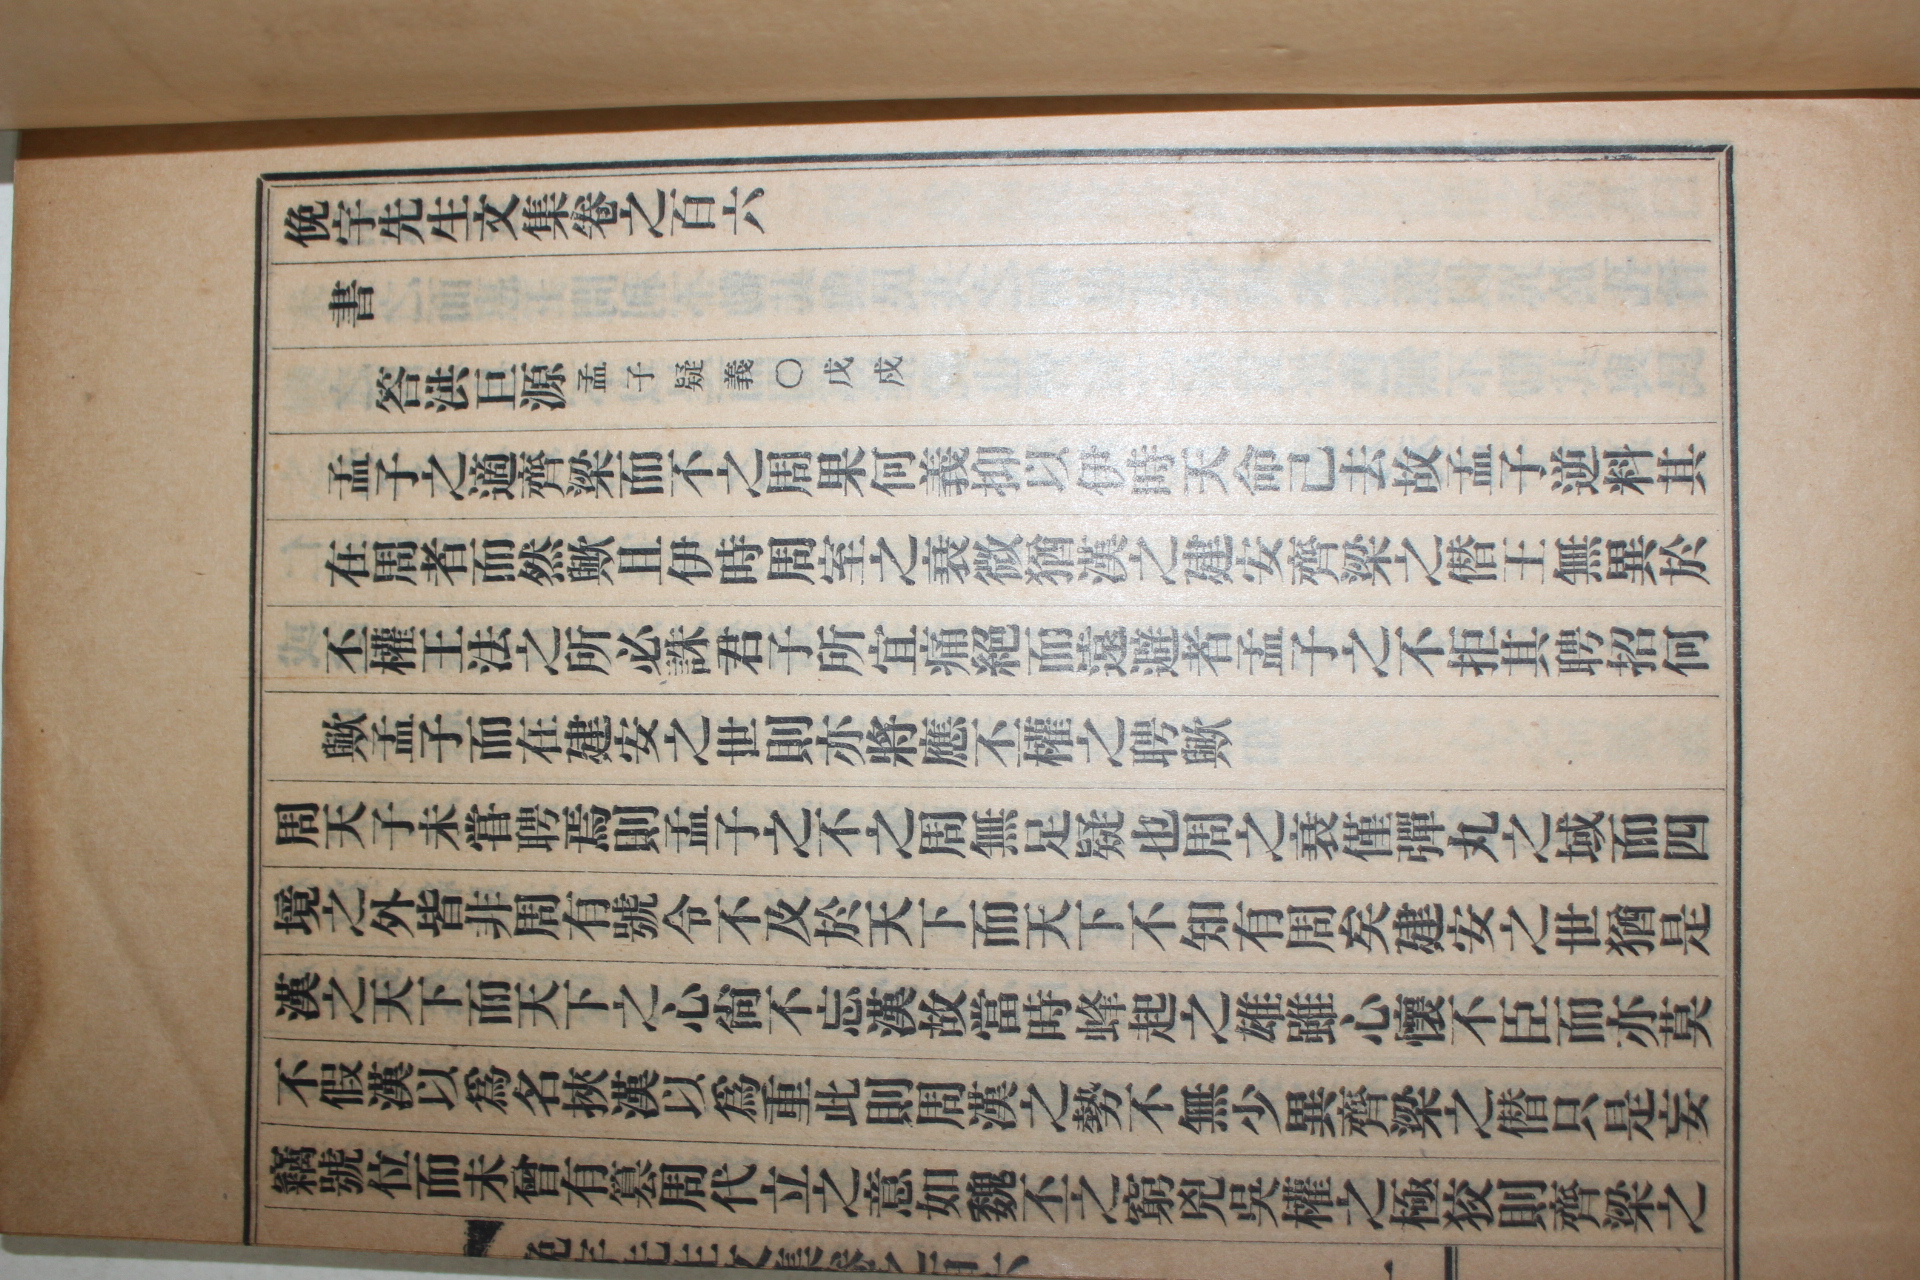 俛宇先生文集卷之百六
書
答洪巨源孟子疑義○戊戌
孟子之適齊梁而不之周果何義抑以伊時天命己去故孟子逆料其
在周者而然歟且伊時周室之衰微猶漢之建安齊梁之僭王無異於
丕權王法之所必誅君子所宜痛絕而遠避者孟子之不拒其聘招何
歟孟子而在建安之世則亦將應丕權之聘歟
周天子未甞聘焉則孟子之不之周無足疑也周之衰僅彈丸之域而四
境之外皆非周有號令不及於天下而天下不知有周矣建安之世猶是
漢之天下而天下之心尙不忘漢故當時蜂起之雄雖心懷不臣而亦莫
不假漢以爲名挾漢以爲重此則周漢之勢不無少異齊梁之僭只是妄
竊號位而未曾有簒周代立之意如魏丕之窮兇吳權之極狡則齊梁之
俛宇先生文集卷之百六
一